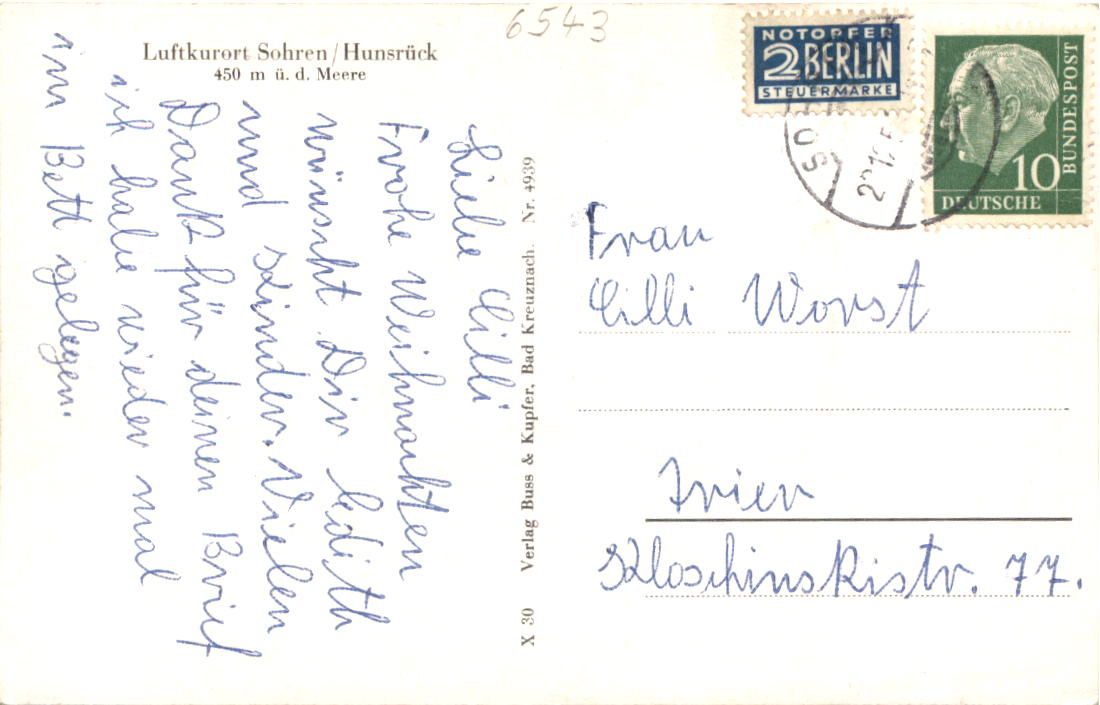 6543
Luftkurort Sohren/Hunsrück
450 m ü. d. Meere
Liebe Cilli
Frohe Weihnachten
wünscht Dir Edith
und Kinder. Vielen
Dank für deinen Brief
ich habe wieder mal
im Bett gelegen.
X 30 Verlag Buss & Kupfer, Bad Kreuznach. Nr. 4939
NOTOPFER
2 BERLIN
STEUERMARKE
10
BUNDESPOST
DEUTSCHE
Frau
Cilli Worst
Trier
Kloschinskistr. 77.